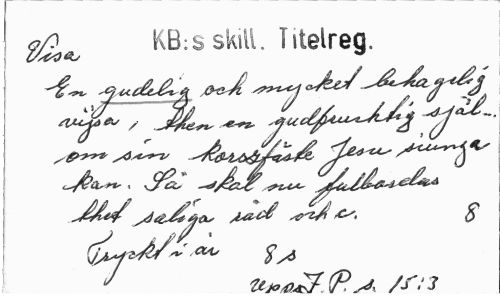 KB:s skill. Titelreg.
Visa
En gudelig och mycket behagelig
vijsa, then en gudfruchtig själ...
om sin korssfäste Jesu siunga
kan. Så skal nu fulbordas
thet saliga råd och c. 8
Tryckt i år 8 s
Upps. F. P. s. 15:3